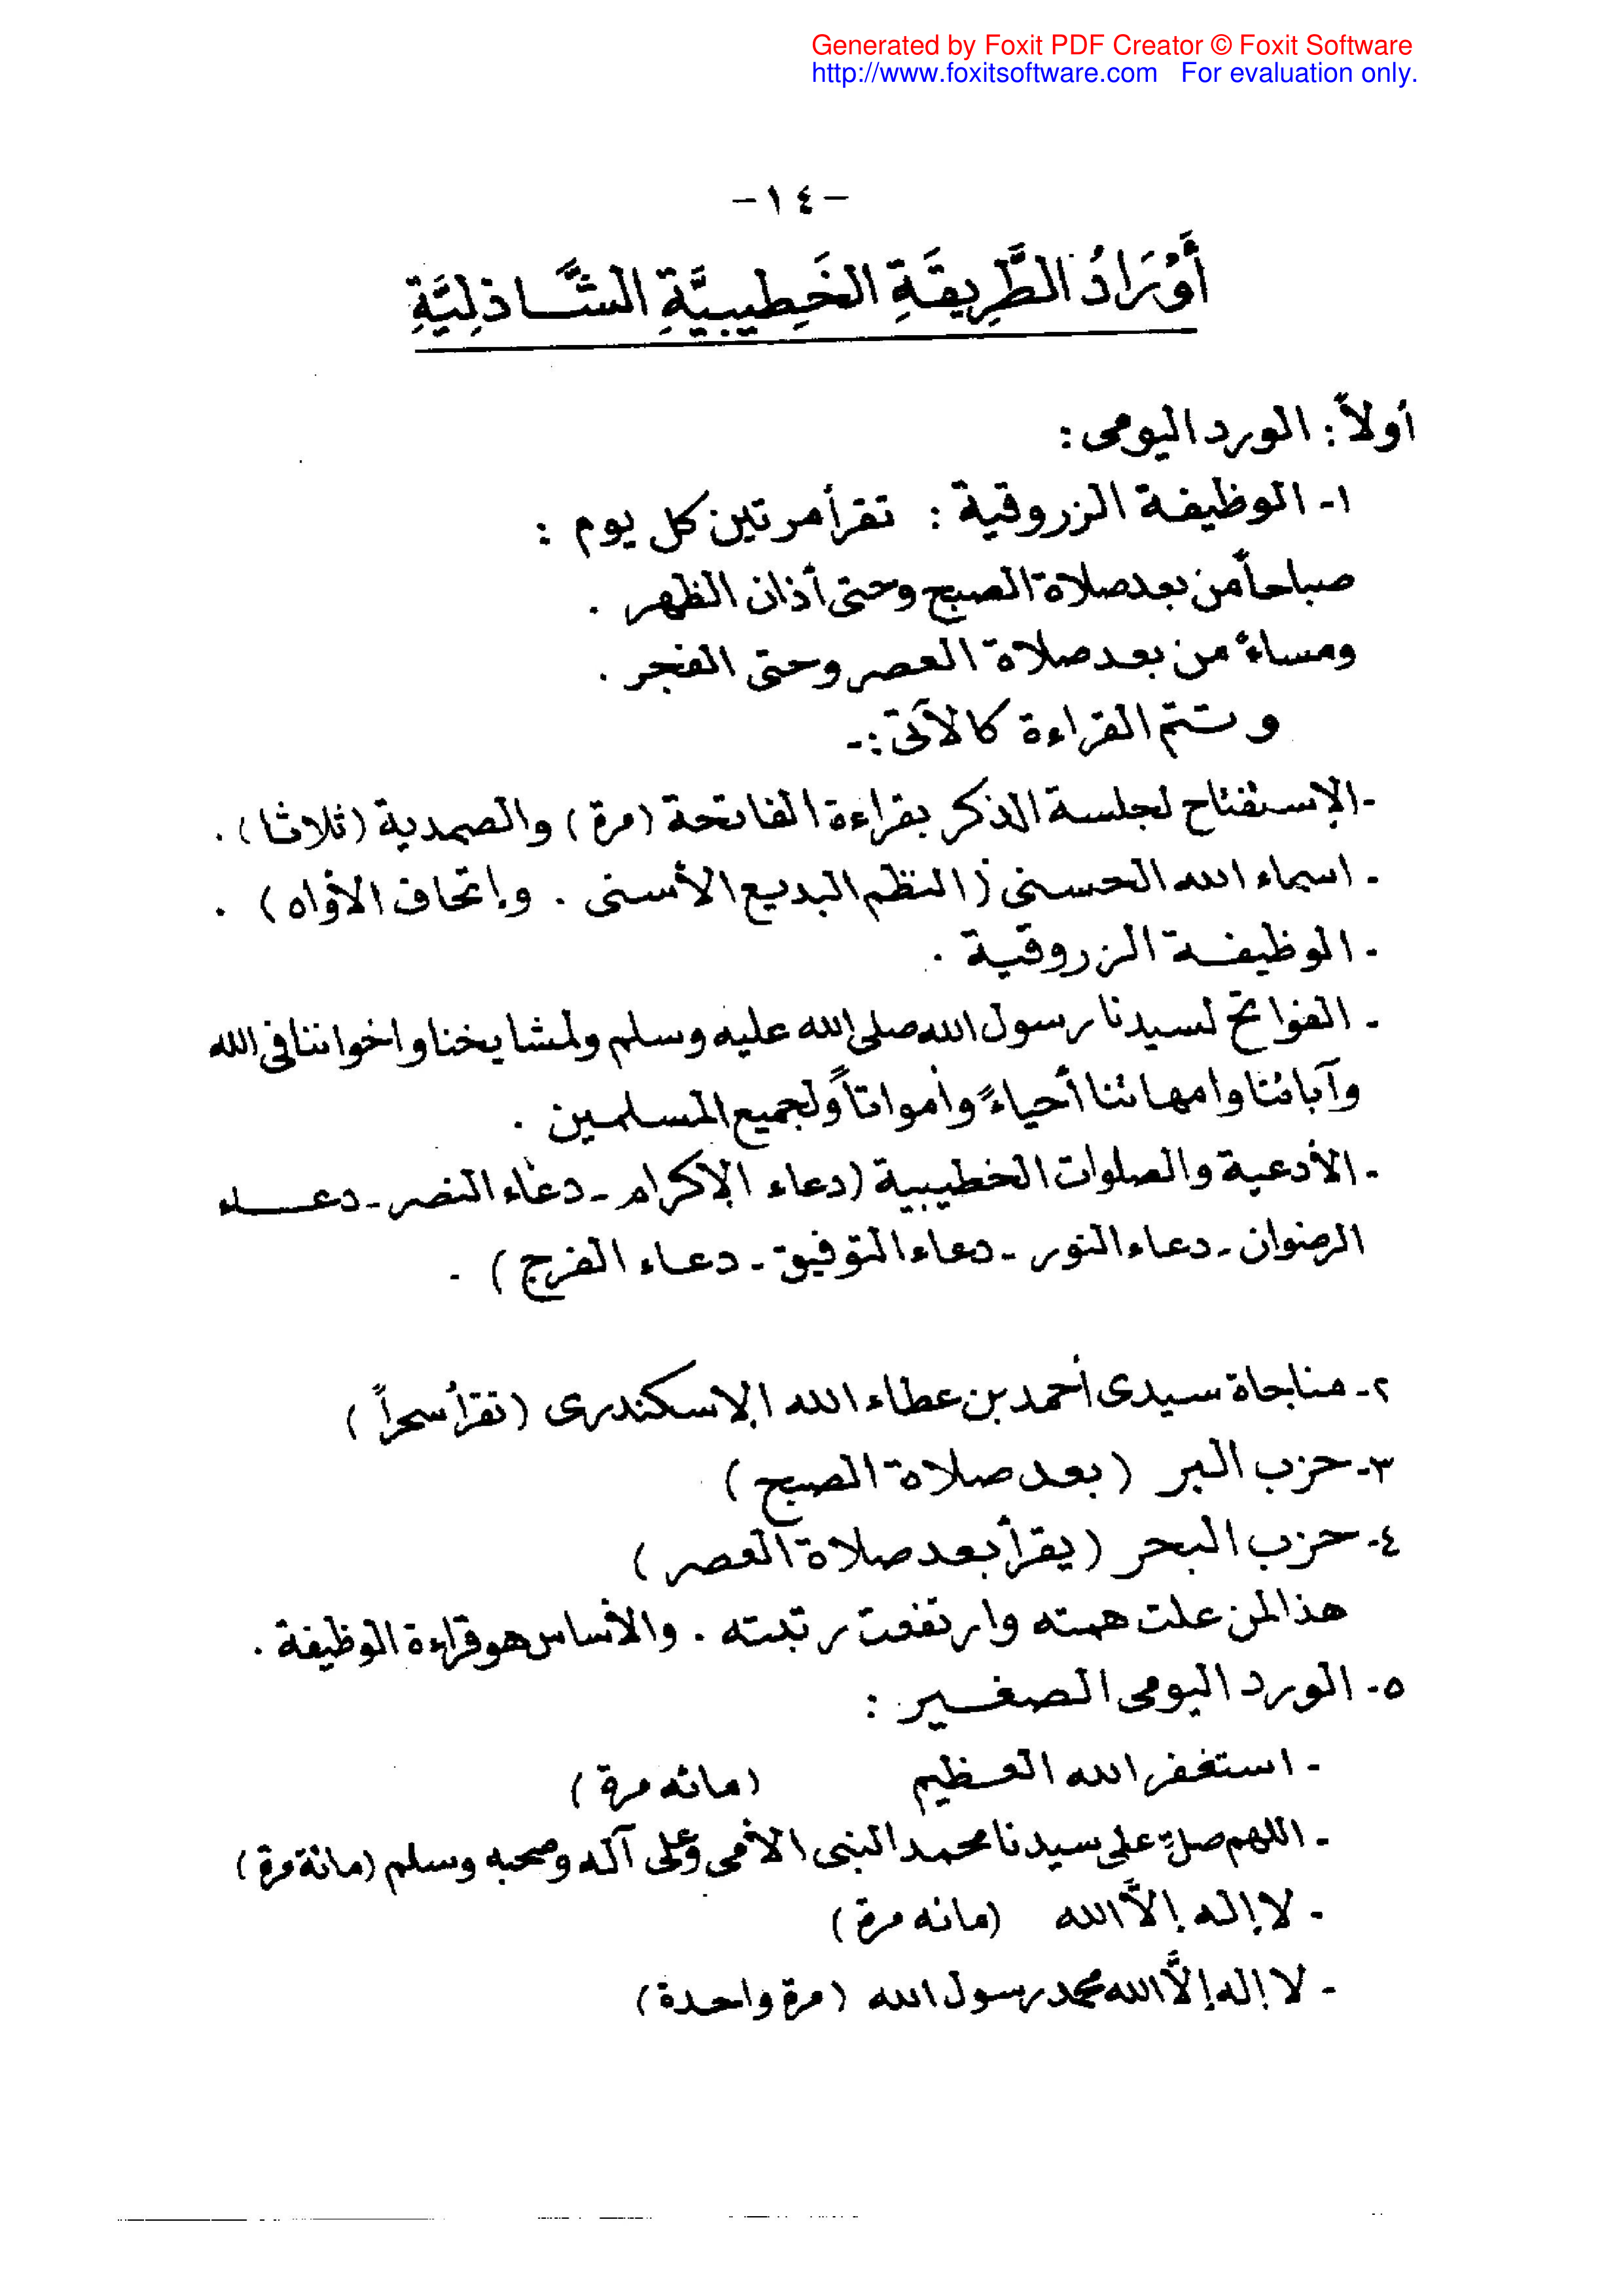 Generated by Foxit PDF Creator © Foxit Software
http://www.foxitsoftware.com For evaluation only.
-١٤-
أَوْرَادُ الطَّرِيقَةِ الخَطِيبِيَّةِ الشَّاذلِيَّةِ
أولاً: الورد اليومى:
١- الوظيفة الزروقية : تقرأ مرتين كل يوم :
صباحاً من بعد صلاة الصبح وحتى أذان الظهر .
ومساءً من بعد صلاة العصر وحتى الفجر .
وتتم القراءة كالآتى :-
- الإستفتاح لجلسة الذكر بقراءة الفاتحة (مرة) والصمدية (ثلاثا) .
- اسماء الله الحسنى (النظم البديع الأسنى . وإتحاف الأواه) .
- الوظيفة الزروقية .
- الفواتح لسيدنا رسول الله صلى الله عليه وسلم ولمشايخنا واخواننا فى الله
وآبائنا وامهاتنا أحياءً وأمواتاً ولجميع المسلمين .
- الأدعية والصلوات الخطيبية (دعاء الإكرام - دعاء النصر - دعاء
الرضوان - دعاء النور - دعاء التوفيق - دعاء الفرج) .
٢- مناجاة سيدى أحمد بن عطاء الله الإسكندرى (تقرأ سحراً)
٣- حزب البر (بعد صلاة الصبح)
٤- حزب البحر (يقرأ بعد صلاة العصر)
هذا لمن علت همته وارتفعت رتبته . والأساس هو قراءة الوظيفة .
٥- الورد اليومى الصغير :
- استغفر الله العظيم (مائه مرة)
- اللهم صلِّ على سيدنا محمد النبى الأمى وعلى آله وصحبه وسلم (مائة مرة)
- لا إله إلاَّ الله (مائه مرة)
- لا إله إلاَّ الله محمد رسول الله (مرة واحدة)